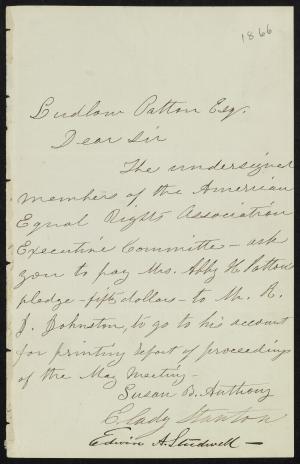 1866
Ludlow Patton Esq.
Dear Sir
The undersigned
members of the American
Equal Rights Association
Executive Committee – ask
you to pay Mrs. Abby H. Patton's
pledge – fifty dollars – to Mr. R.
J. Johnston, to go to his account
for printing Report of proceedings
of the May meeting –
Susan B. Anthony
E. Cady Stanton
Edwin A. Studwell –